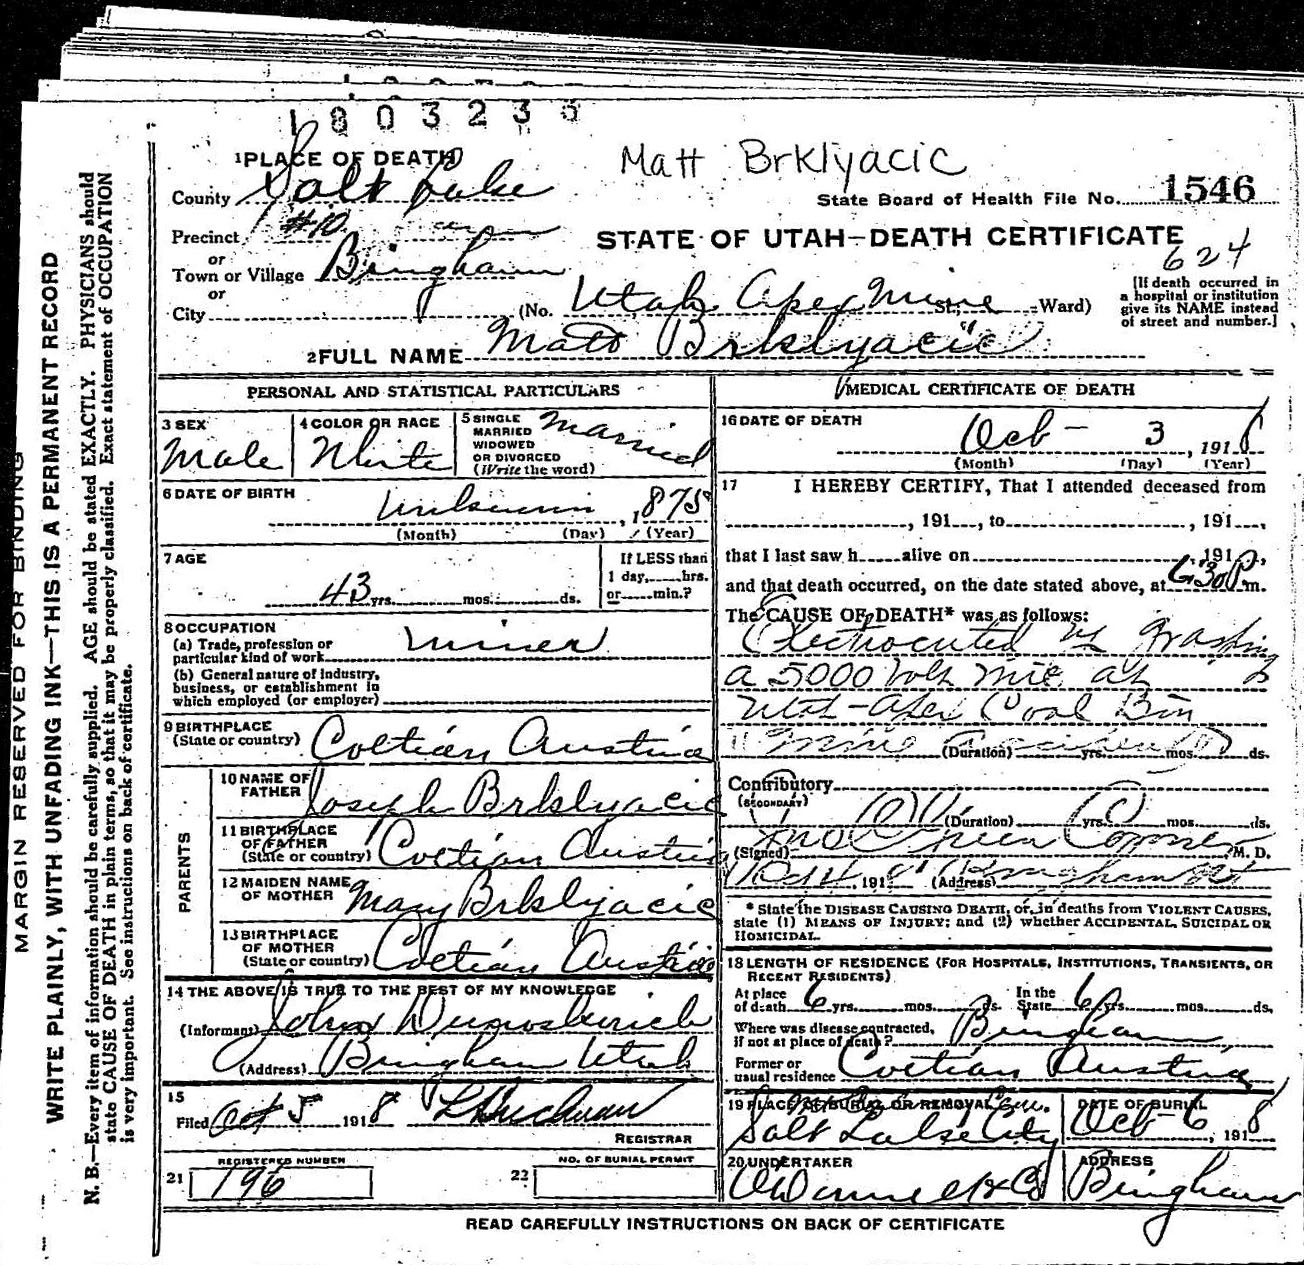 1803235
Matt Brklyacic
1 PLACE OF DEATH
County Salt Lake
State Board of Health File No. 1546
Precinct #10
or
STATE OF UTAH—DEATH CERTIFICATE
624
Town or Village Bingham
or
City
(No. Utah Apex Mine St; Ward)
[If death occurred in
a hospital or institution
give its NAME instead
of street and number.]
2 FULL NAME Matt Brklyacic
PERSONAL AND STATISTICAL PARTICULARS
3 SEX
Male
4 COLOR OR RACE
White
5 SINGLE
MARRIED
WIDOWED
OR DIVORCED
(Write the word)
Married
6 DATE OF BIRTH
Unknown, 1875
(Month) (Day) (Year)
7 AGE
43 yrs. mos. ds.
If LESS than
1 day, hrs.
or min.?
8 OCCUPATION
(a) Trade, profession or
particular kind of work
Miner
(b) General nature of industry,
business, or establishment in
which employed (or employer)
9 BIRTHPLACE
(State or country) Coetian Austria
PARENTS
10 NAME OF
FATHER Joseph Brklyacic
11 BIRTHPLACE
OF FATHER
(State or country) Coetian Austria
12 MAIDEN NAME
OF MOTHER Mary Brklyacic
13 BIRTHPLACE
OF MOTHER
(State or country) Coetian Austria
14 THE ABOVE IS TRUE TO THE BEST OF MY KNOWLEDGE
(Informant) John
(Address) Bingham Utah
15
Filed Oct 5 1918
REGISTRAR
REGISTERED NUMBER
21 196
NO. OF BURIAL PERMIT
22
MEDICAL CERTIFICATE OF DEATH
16 DATE OF DEATH
Oct - 3, 1918
(Month) (Day) (Year)
17 I HEREBY CERTIFY, That I attended deceased from
, 191 , to , 191 ,
that I last saw h alive on , 191 ,
and that death occurred, on the date stated above, at 6:30 P m.
The CAUSE OF DEATH* was as follows:
Electrocuted by Grasping
a 5000 Volt Wire at
Utah-Apex Coal Bin
Mine Accident
(Duration) yrs. mos. ds.
Contributory
(SECONDARY)
(Duration) yrs. mos. ds.
(Signed) M. D.
Oct 4, 1918 (Address) Bingham Ut
* State the DISEASE CAUSING DEATH, or, in deaths from VIOLENT CAUSES,
state (1) MEANS OF INJURY; and (2) whether ACCIDENTAL, SUICIDAL OR
HOMICIDAL.
18 LENGTH OF RESIDENCE (FOR HOSPITALS, INSTITUTIONS, TRANSIENTS, OR
RECENT RESIDENTS)
At place
of death 6 yrs. mos. ds. In the
State 6 yrs. mos. ds.
Where was disease contracted,
if not at place of death? Bingham
Former or
usual residence Coetian Austria
19 PLACE OF BURIAL OR REMOVAL
Salt Lake City
DATE OF BURIAL
Oct 6, 1918
20 UNDERTAKER
O'Donnell & Co
ADDRESS
Bingham
READ CAREFULLY INSTRUCTIONS ON BACK OF CERTIFICATE
MARGIN RESERVED FOR BINDING
WRITE PLAINLY, WITH UNFADING INK—THIS IS A PERMANENT RECORD
N. B.—Every item of information should be carefully supplied. AGE should be stated EXACTLY. PHYSICIANS should
state CAUSE OF DEATH in plain terms, so that it may be properly classified. Exact statement of OCCUPATION
is very important. See instructions on back of certificate.